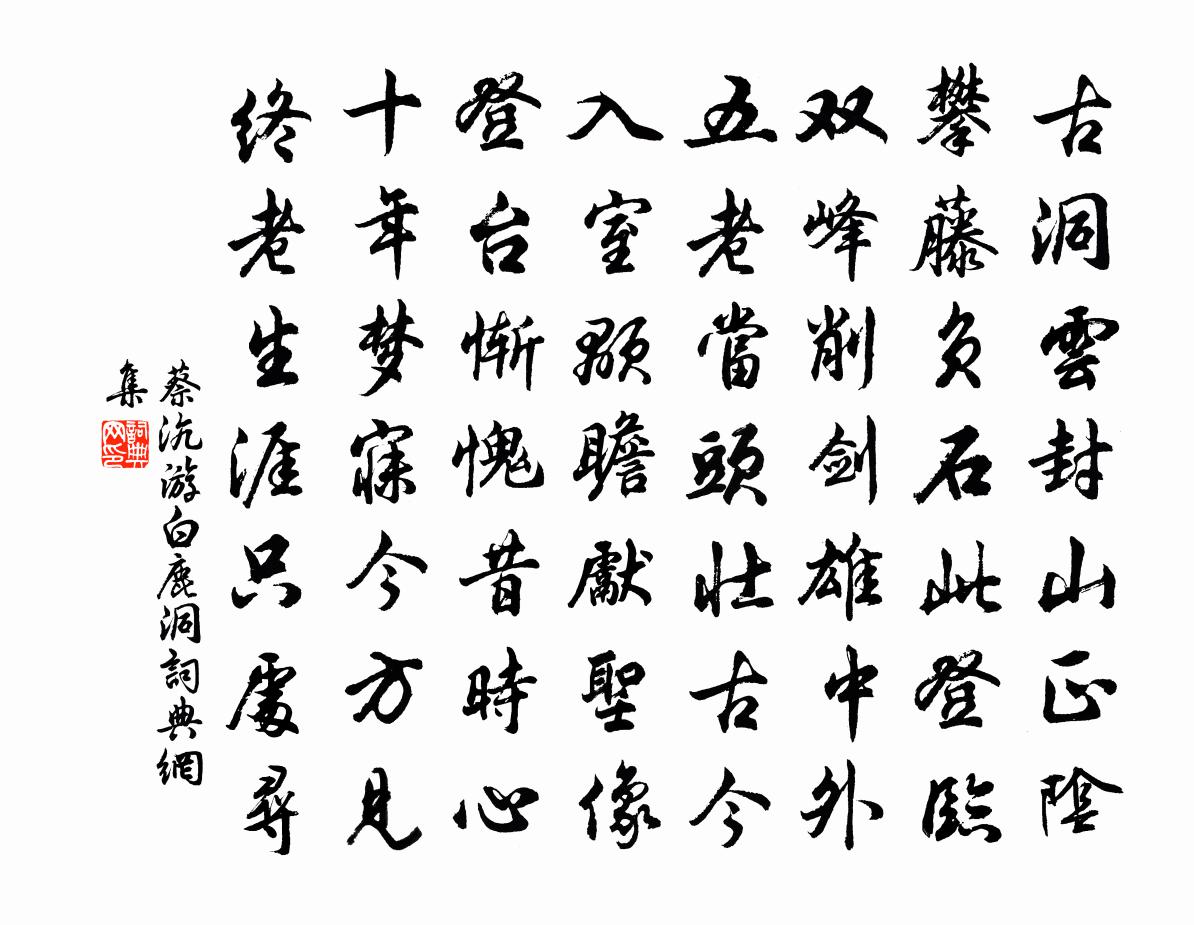 古洞雲封山正陰
攀藤負石此登臨
双峰削劍雄中外
五老當頭壯古今
入室顒瞻獻聖像
登台慚愧昔時心
十年梦寐今方見
终老生涯只處尋
蔡沉游白鹿洞詞典網
集
詞典网印